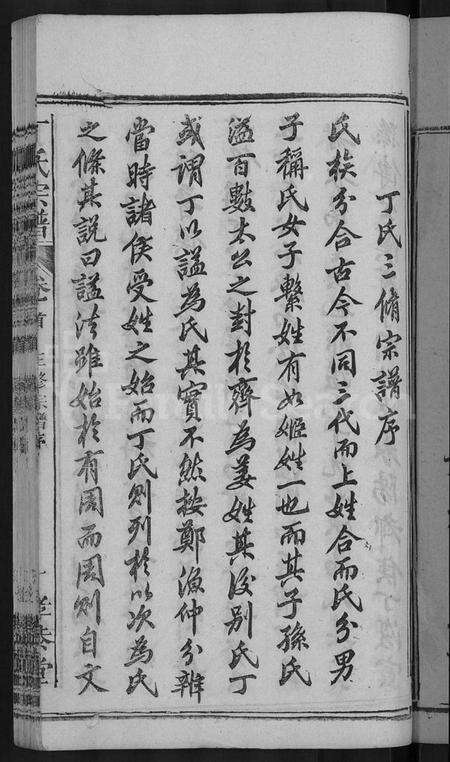 丁氏三脩宗譜序
氏族分合古今不同三代而上姓合而氏分男
子稱氏女子繫姓有如姬姓一也而其子孫氏
溢百數太公之封於齊為姜姓其後別氏丁
或謂丁以謚為氏其實不然按鄭漁仲分辨
當時諸侯受姓之始而丁氏則列於以次為氏
之條其說曰謚法雖始於有周而周則自文
丁氏宗譜 卷首